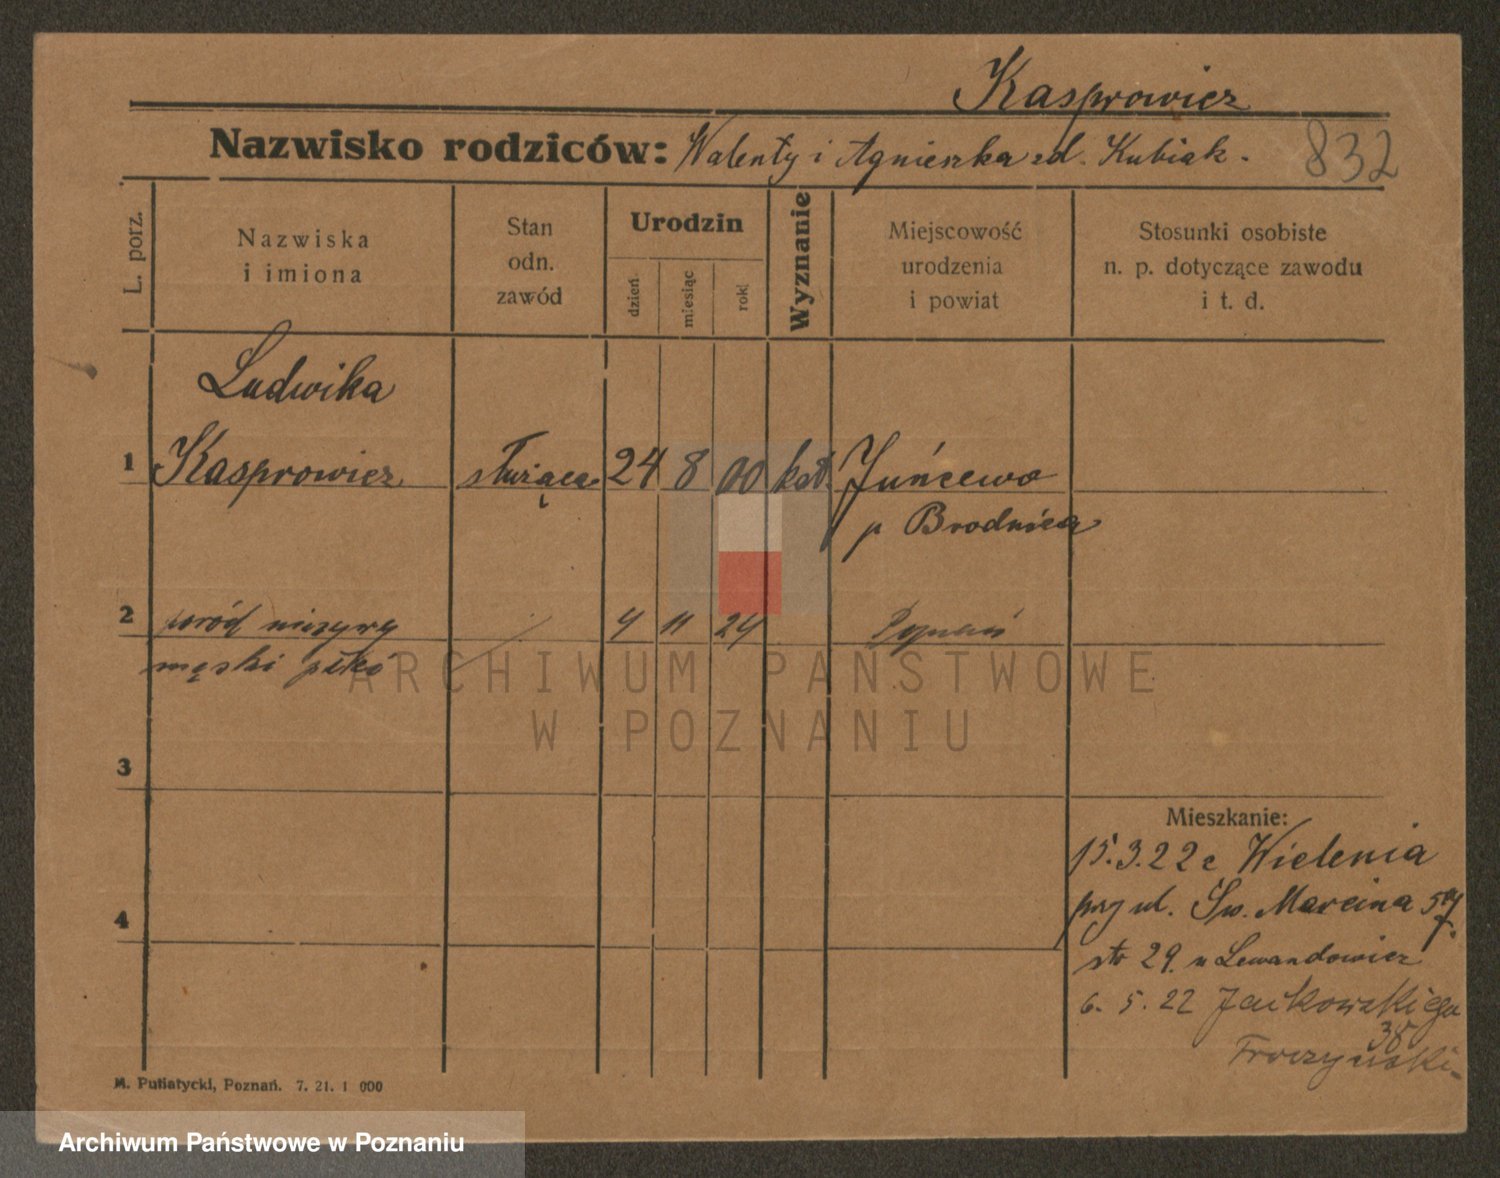 Kasprowicz
Nazwisko rodziców: Walenty i Agnieszka zd. Kubiak.
832
L. porz.
Nazwiska
i imiona
Stan
odn.
zawód
Urodzin
dzień
miesiąc
rok
Wyznanie
Miejscowość
urodzenia
i powiat
Stosunki osobiste
n. p. dotyczące zawodu
i t. d.
Ludwika
1 Kasprowicz służąca 24 8 00 kat. Juńcewo
p Brodnica
2 poród nieżywy 4 11 24 Poznań
męski płeć
ARCHIWUM PAŃSTWOWE
W POZNANIU
3
Mieszkanie:
15.3.22 z Wielenia
4
przy ul. Św. Marcina
29. u Lewandowicz
6. 5. 22 Jackowskiego
38
M. Putiatycki, Poznań. 7. 21. 1 000
Archiwum Państwowe w Poznaniu